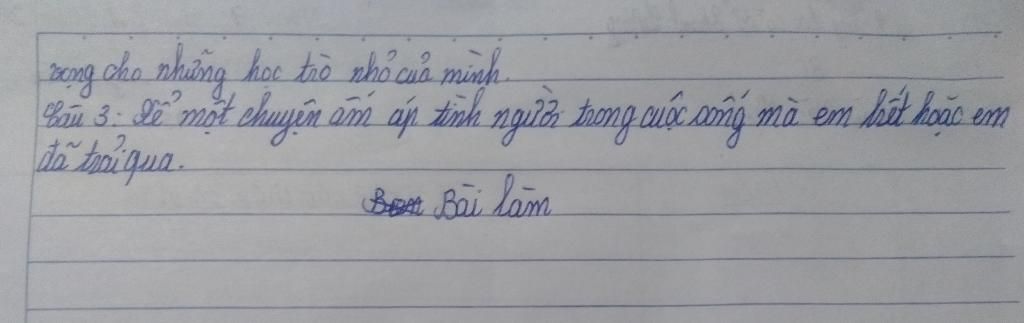 rọng cho những học trò nhỏ của mình.
Câu 3: Kể một chuyện ấm áp tình người trong cuộc sống mà em biết hoặc em
đã trải qua.
Bài làm